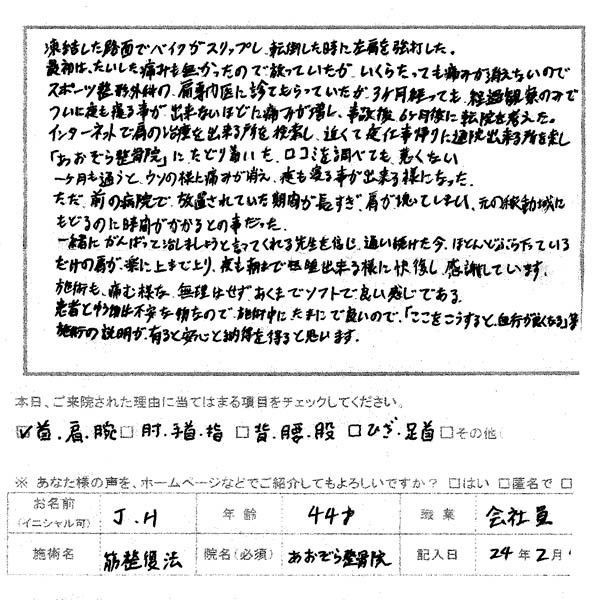 凍結した路面でバイクがスリップし、転倒した時に左肩を強打した。
最初は、たいした痛みも無かったので放っていたが、いくらたっても痛みが消えないので
スポーツ整形外科の、肩専門医に診てもらっていたが、3ヶ月経っても、経過観察のみで
ついに夜も寝る事が出来ないほどに痛みが増し、事故後6ヶ月後に転院を考えた。
インターネットで肩の治療を出来る所を検索し、近くて定仕事帰りに通院出来る所を楽し
「あおぞら整骨院」にたどり着いた。口コミを調べても、悪くない
一ヶ月も通うと、ウソの様に痛みが消え、夜も寝る事が出来る様になった。
ただ、前の病院で、放置されていた期間が長すぎ、肩が拠してしまい、元の稼動域に
もどるのに時間がかかるとの事だった。
一緒にがんばって治しましょうと言ってくれる先生を信じ、通い続けた今、ほとんどぶら下っている
だけの肩が、楽に上まで上り、夜も朝まで熟睡出来る様に快復し、感謝しています。
施術も、痛む様な、無理はせず、あくまでソフトで良い感じである。
患者と
は不安な物なので、施術中にたまにで良いので、「ここをこうすると、血行が良くなる」等
施術の説明が、有ると安心と納得を得ると思います。
本日、ご来院された理由に当てはまる項目をチェックしてください。
☑首・肩・腕□肘・手首・指 □背・腰・股 □ひざ・足首□その他
※ あなた様の声を、ホームページなどでご紹介してもよろしいですか？ □はい □匿名で □
お名前
(イニシャル可) J.H 年齢 44才 職業 会社員
施術名 筋整復法 院名(必須) あおぞら整骨院 記入日 24年2月